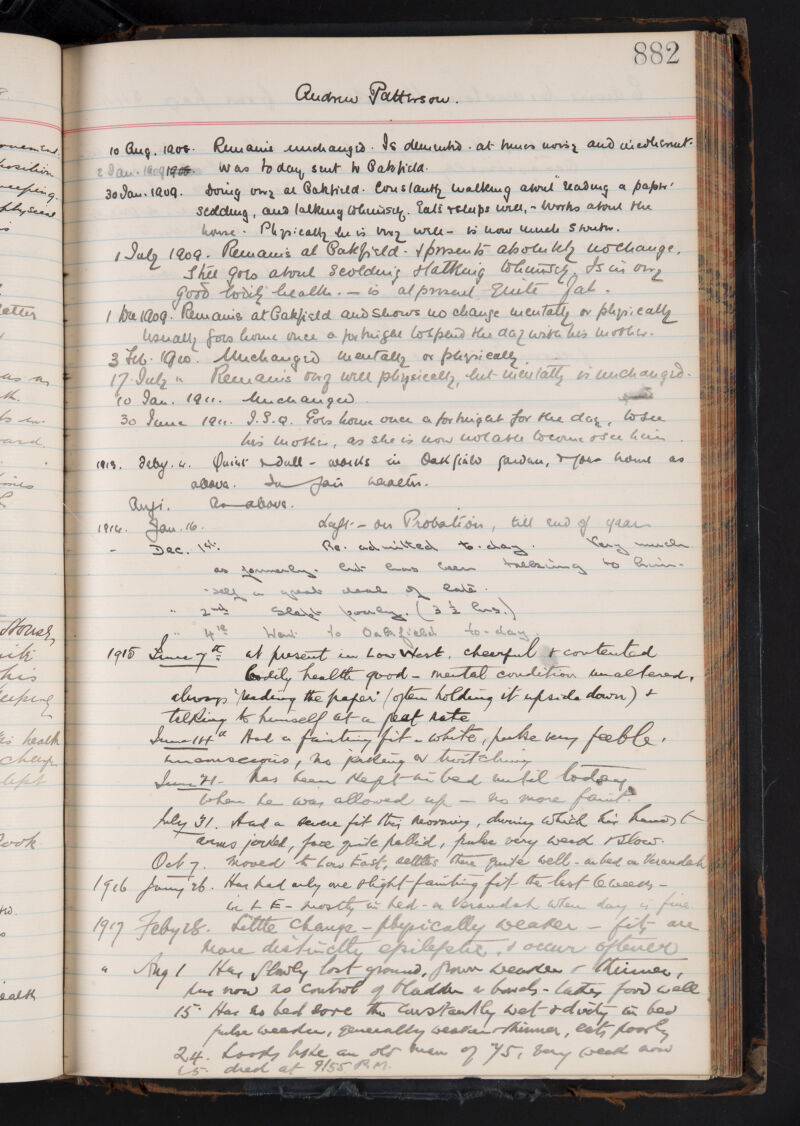 882
Andrew Patterson.
10 Aug. 1908. Remains unchanged. Is demented. at times noisy and incoherent.
2 Jan. 1909 1908 Was today sent to Oakfield.
30 Jan. 1909. Doing very at Oakfield. Constantly walking about 'reading a paper'
scolding, and talking whimsey. Eats & sleeps well, - works about the
house. Physically he is very well - is now much stouter.
1 July 1909. Remains at Oakfield. & presents absolutely no change.
Still goes about scolding & talking whimsey. Is in very
good bodily health. - is at present quite fat.
1 Dec 1909. Remains at Oakfield and shows no change mentally or physically
Usually goes home once a fortnight to spend the day with his mother.
3 Feb. 1910. Unchanged mentally or physically.
17 July " Remains very well physically, but mentally is unchanged.
10 Jan. 1911. Unchanged.
30 June 1911. I.S.Q. Goes home once a fortnight for the day, to see
his mother, as she is now not able to come & see him.
1913. Feby. 4. Quiet & dull - works in Oakfield garden, & goes home as
above. In fair health.
As above.
1914. Jan. 16. Left - on Probation, till end of year
- Dec. 1st. Re-admitted to-day. Very much
as formerly. but has been talking to him-
-self a great deal of late.
" 2nd Slept poorly. (3½ hrs.)
" 4th Went to Oakfield to-day
1915 June 7th at present in Low West. cheerful & contented
bodily health good - mental condition unaltered,
always 'reading the paper' (often holding it upside down) &
talking to himself at a great rate
June 14th Had a fainting fit - white, pulse very feeble,
unconscious, no jerking or twitching
June 21. has been kept in bed until today
when he was allowed up - no more faint.
July 31. Had a severe fit this morning, during which his hands &
arms jerked, face quite pallid, pulse very weak & slow.
Oct 7. moved to Low East, settles there quite well - in bed on Verandah
1916 Jany 26. Has had only one slight fainting fit the last 6 weeks -
in L E - mostly in bed - on Verandah when day is fine
1917 Feby 28. Little change - physically weaker - fits are
more distinctly epileptic, & occur oftener
" Aug 1 Has slowly lost ground, grown weaker & thinner,
has now no control of bladder or bowels - takes food well
15 Has no bed sore tho constantly wet & dirty in bed
pulse weaker, generally weaker & thinner, eats poorly
24. Looks like an old man of 75, very weak now
25. died at 9/55 P.M.